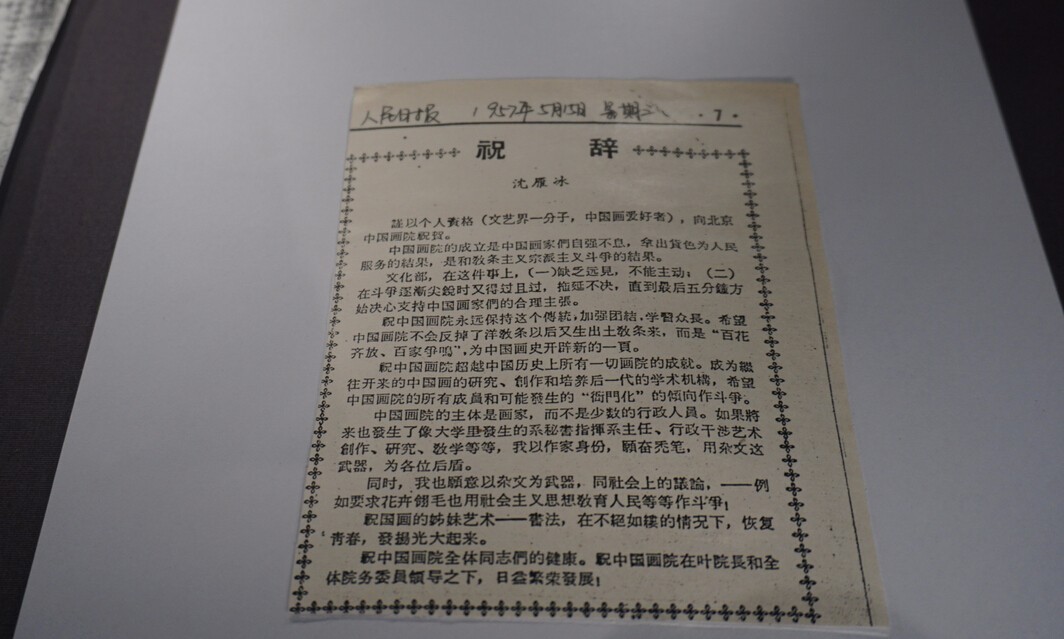 人民日报 1957年5月15日 星期三 ·7·
祝 辞
沈雁冰
謹以个人資格（文艺界一分子，中国画爱好者），向北京
中国画院祝賀。
中国画院的成立是中国画家們自强不息，拿出貨色为人民
服务的結果，是和教条主义宗派主义斗爭的結果。
文化部，在这件事上，（一）缺乏远見，不能主动；（二）
在斗爭逐漸尖銳时又得过且过，拖延不决，直到最后五分鐘方
始决心支持中国画家們的合理主張。
祝中国画院永远保持这个傳統，加强团結，学習众長。希望
中国画院不会反掉了洋教条以后又生出土教条来，而是“百花
齐放、百家爭鳴”，为中国画史开辟新的一頁。
祝中国画院超越中国历史上所有一切画院的成就。成为繼
往开来的中国画的研究、創作和培养后一代的学术机構，希望
中国画院的所有成員和可能發生的“衙門化”的傾向作斗爭。
中国画院的主体是画家，而不是少数的行政人員。如果將
来也發生了像大学里發生的系秘書指揮系主任、行政干涉艺术
創作、研究、敎学等等，我以作家身份，願奋禿笔，用杂文这
武器，为各位后盾。
同时，我也願意以杂文为武器，同社会上的議論，——例
如要求花卉翎毛也用社会主义思想敎育人民等等作斗爭！
祝国画的姊妹艺术——書法，在不絕如縷的情况下，恢复
青春，發揚光大起来。
祝中国画院全体同志們的健康。祝中国画院在叶院長和全
体院务委員領导之下，日益繁荣發展！